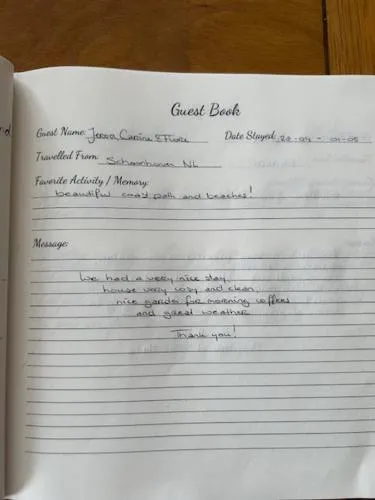 Guest Book
Guest Name: Jenna, Carina & Fiore
Date Stayed: 28-04 - 01-05
Travelled From: Schoonhoven NL
Favorite Activity / Memory:
beautiful coast path and beaches!
Message:
We had a very nice stay,
house very cosy and clean,
nice garden for morning coffees
and great weather
Thank you!